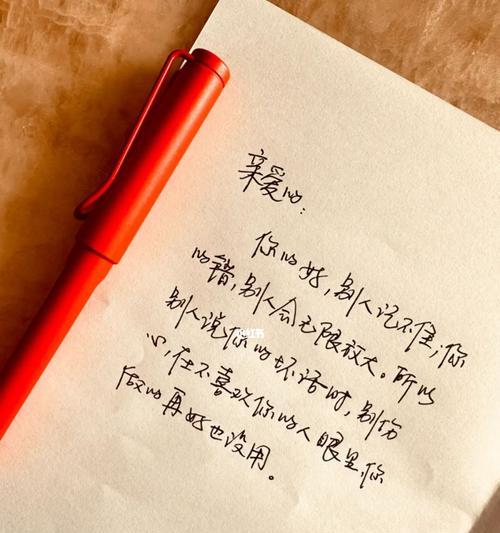 亲爱的：
你的好，别人记不住，你
的错，别人会无限放大。所以
别人说你的坏话时，别伤
心，在不喜欢你的人眼里，你
做的再好也没用。